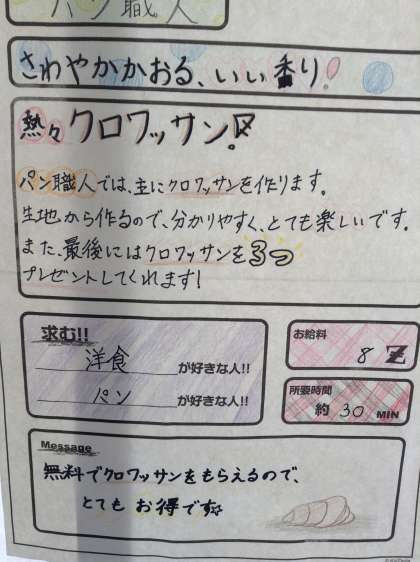 パン職人
さわやかかおる、いい香り!
熱々クロワッサン。
パン職人では、主にクロワッサンを作ります。
生地から作るので、分かりやすく、とても楽しいです。
また、最後にはクロワッサンを3つ
プレゼントしてくれます!
求む!!
洋食が好きな人!!
パンが好きな人!!
お給料
8
所要時間
約30MIN
Message
無料でクロワッサンをもらえるので、
とてもお得です☆